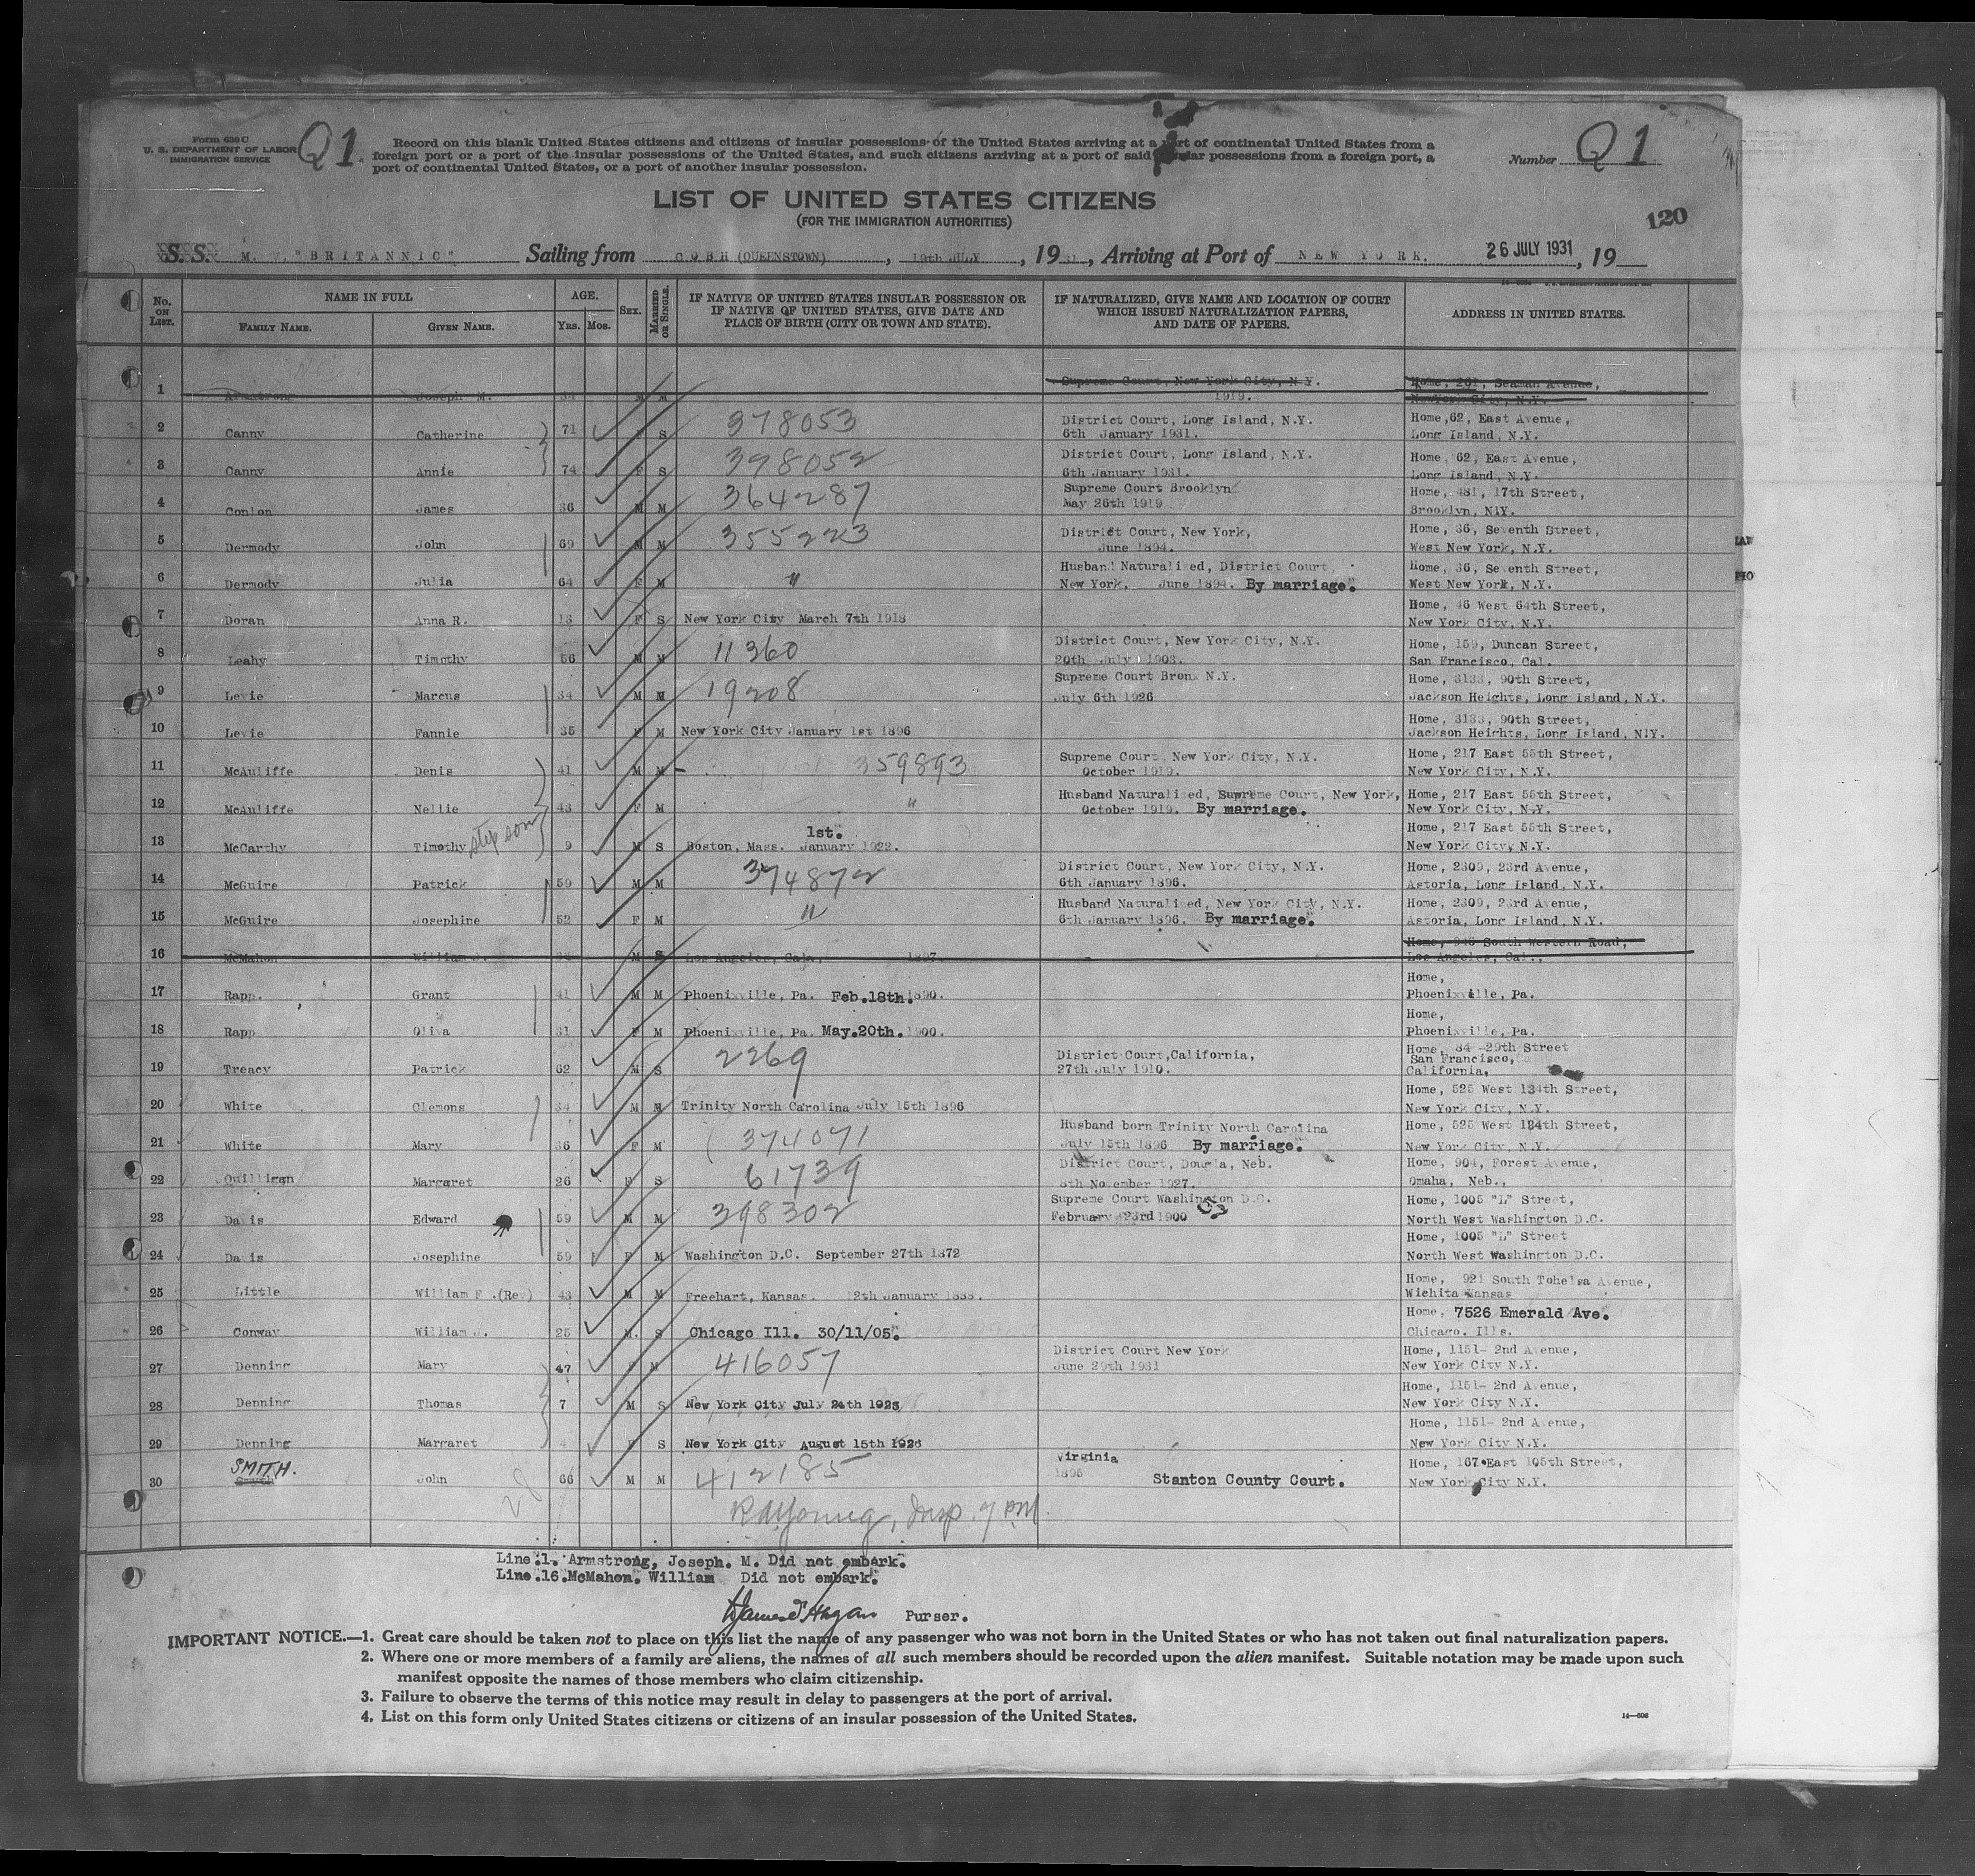 Form 630 C
U. S. DEPARTMENT OF LABOR
IMMIGRATION SERVICE
Q1.
Record on this blank United States citizens and citizens of insular possessions of the United States arriving at a port of continental United States from a
foreign port or a port of the insular possessions of the United States, and such citizens arriving at a port of said insular possessions from a foreign port, a
port of continental United States, or a port of another insular possession.
Number Q1
LIST OF UNITED STATES CITIZENS
(FOR THE IMMIGRATION AUTHORITIES)
120
S. S. M. V. "BRITANNIC" Sailing from COBH (QUEENSTOWN), 19th JULY, 1931, Arriving at Port of NEW YORK. 26 JULY 1931, 19
No. ON LIST. NAME IN FULL FAMILY NAME. GIVEN NAME. AGE. YRS. MOS. SEX. MARRIED OR SINGLE. IF NATIVE OF UNITED STATES INSULAR POSSESSION OR IF NATIVE OF UNITED STATES, GIVE DATE AND PLACE OF BIRTH (CITY OR TOWN AND STATE). IF NATURALIZED, GIVE NAME AND LOCATION OF COURT WHICH ISSUED NATURALIZATION PAPERS, AND DATE OF PAPERS. ADDRESS IN UNITED STATES.
1 Armstrong Joseph M. 34 M M Supreme Court, New York City, N.Y. 1919. Home, 261, Seaman Avenue, New York City, N.Y.
2 Canny Catherine 71 F S 378053 District Court, Long Island, N.Y. 6th January 1931. Home, 62, East Avenue, Long Island, N.Y.
3 Canny Annie 74 F S 378052 District Court, Long Island, N.Y. 6th January 1931. Home, 62, East Avenue, Long Island, N.Y.
4 Conlon James 36 M M 364287 Supreme Court Brooklyn May 26th 1919 Home, 481, 17th Street, Brooklyn, N.Y.
5 Dermody John 69 M M 355223 District Court, New York, June 1894. Home, 36, Seventh Street, West New York, N.Y.
6 Dermody Julia 64 F M " Husband Naturalized, District Court, New York, June 1894. By marriage. Home, 36, Seventh Street, West New York, N.Y.
7 Doran Anna R. 13 F S New York City March 7th 1918 Home, 46 West 64th Street, New York City, N.Y.
8 Leahy Timothy 56 M M 11360 District Court, New York City, N.Y. 20th July 1903. Home, 159, Duncan Street, San Francisco, Cal.
9 Levie Marcus 34 M M 19208 Supreme Court Bronx N.Y. July 6th 1926 Home, 3133, 90th Street, Jackson Heights, Long Island, N.Y.
10 Levie Fannie 35 F M New York City January 1st 1896 Home, 3133, 90th Street, Jackson Heights, Long Island, N.Y.
11 McAuliffe Denis 41 M M 359893 Supreme Court, New York City, N.Y. October 1919. Home, 217 East 55th Street, New York City, N.Y.
12 McAuliffe Nellie 43 F M " Husband Naturalized, Supreme Court, New York, October 1919. By marriage. Home, 217 East 55th Street, New York City, N.Y.
13 McCarthy Timothy step son 9 M S Boston, Mass. January 1st. 1922. Home, 217 East 55th Street, New York City, N.Y.
14 McGuire Patrick 59 M M 374872 District Court, New York City, N.Y. 6th January 1896. Home, 2309, 23rd Avenue, Astoria, Long Island, N.Y.
15 McGuire Josephine 52 F M " Husband Naturalized, New York City, N.Y. 6th January 1896. By marriage. Home, 2309, 23rd Avenue, Astoria, Long Island, N.Y.
16 McMahon William J. M S Los Angeles, Cal., 1897. Home, 946 South Western Road, Los Angeles, Cal.,
17 Rapp. Grant 41 M M Phoenixville, Pa. Feb.18th.1890. Home, Phoenixville, Pa.
18 Rapp Oliva 31 F M Phoenixville, Pa. May.20th.1900. Home, Phoenixville, Pa.
19 Treacy Patrick 62 M S 2269 District Court, California, 27th July 1910. Home, 84 -29th Street San Francisco, California,
20 White Clemons 34 M M Trinity North Carolina July 15th 1896 Home, 525 West 134th Street, New York City, N.Y.
21 White Mary 36 F M 374071 Husband born Trinity North Carolina July 15th 1896 By marriage. Home, 525 West 134th Street, New York City, N.Y.
22 Quilligan Margaret 26 F S 61739 District Court, Dougla, Neb. 8th November 1927. Home, 904, Forest Avenue, Omaha, Neb.,
23 Davis Edward 59 M M 398302 Supreme Court Washington D.C. February 23rd 1900 Home, 1005 "L" Street, North West Washington D.C.
24 Davis Josephine 59 F M Washington D.C. September 27th 1872 Home, 1005 "L" Street North West Washington D.C.
25 Little William F.(Rev) 43 M M Freehart, Kansas. 12th January 1888. Home, 921 South Tohelsa Avenue, Wichita Kansas
26 Conway William J. 25 M. S Chicago Ill. 30/11/05. Home, 7526 Emerald Ave. Chicago. Ills.
27 Denning Mary 47 F M 416057 District Court New York June 29th 1931 Home, 1151- 2nd Avenue, New York City N.Y.
28 Denning Thomas 7 M S New York City July 24th 1923 Home, 1151- 2nd Avenue, New York City N.Y.
29 Denning Margaret 4 F S New York City August 15th 1926 Home, 1151- 2nd Avenue, New York City N.Y.
30 SMITH. John 66 M M 412185 Virginia 1895 Stanton County Court. Home, 167 East 105th Street, New York City N.Y.
28
R A Young, Insp. 7 PM
Line.1. Armstrong, Joseph. M. Did not embark.
Line.16.McMahon. William Did not embark.
Purser.
IMPORTANT NOTICE.—1. Great care should be taken not to place on this list the name of any passenger who was not born in the United States or who has not taken out final naturalization papers.
2. Where one or more members of a family are aliens, the names of all such members should be recorded upon the alien manifest. Suitable notation may be made upon such
manifest opposite the names of those members who claim citizenship.
3. Failure to observe the terms of this notice may result in delay to passengers at the port of arrival.
4. List on this form only United States citizens or citizens of an insular possession of the United States.